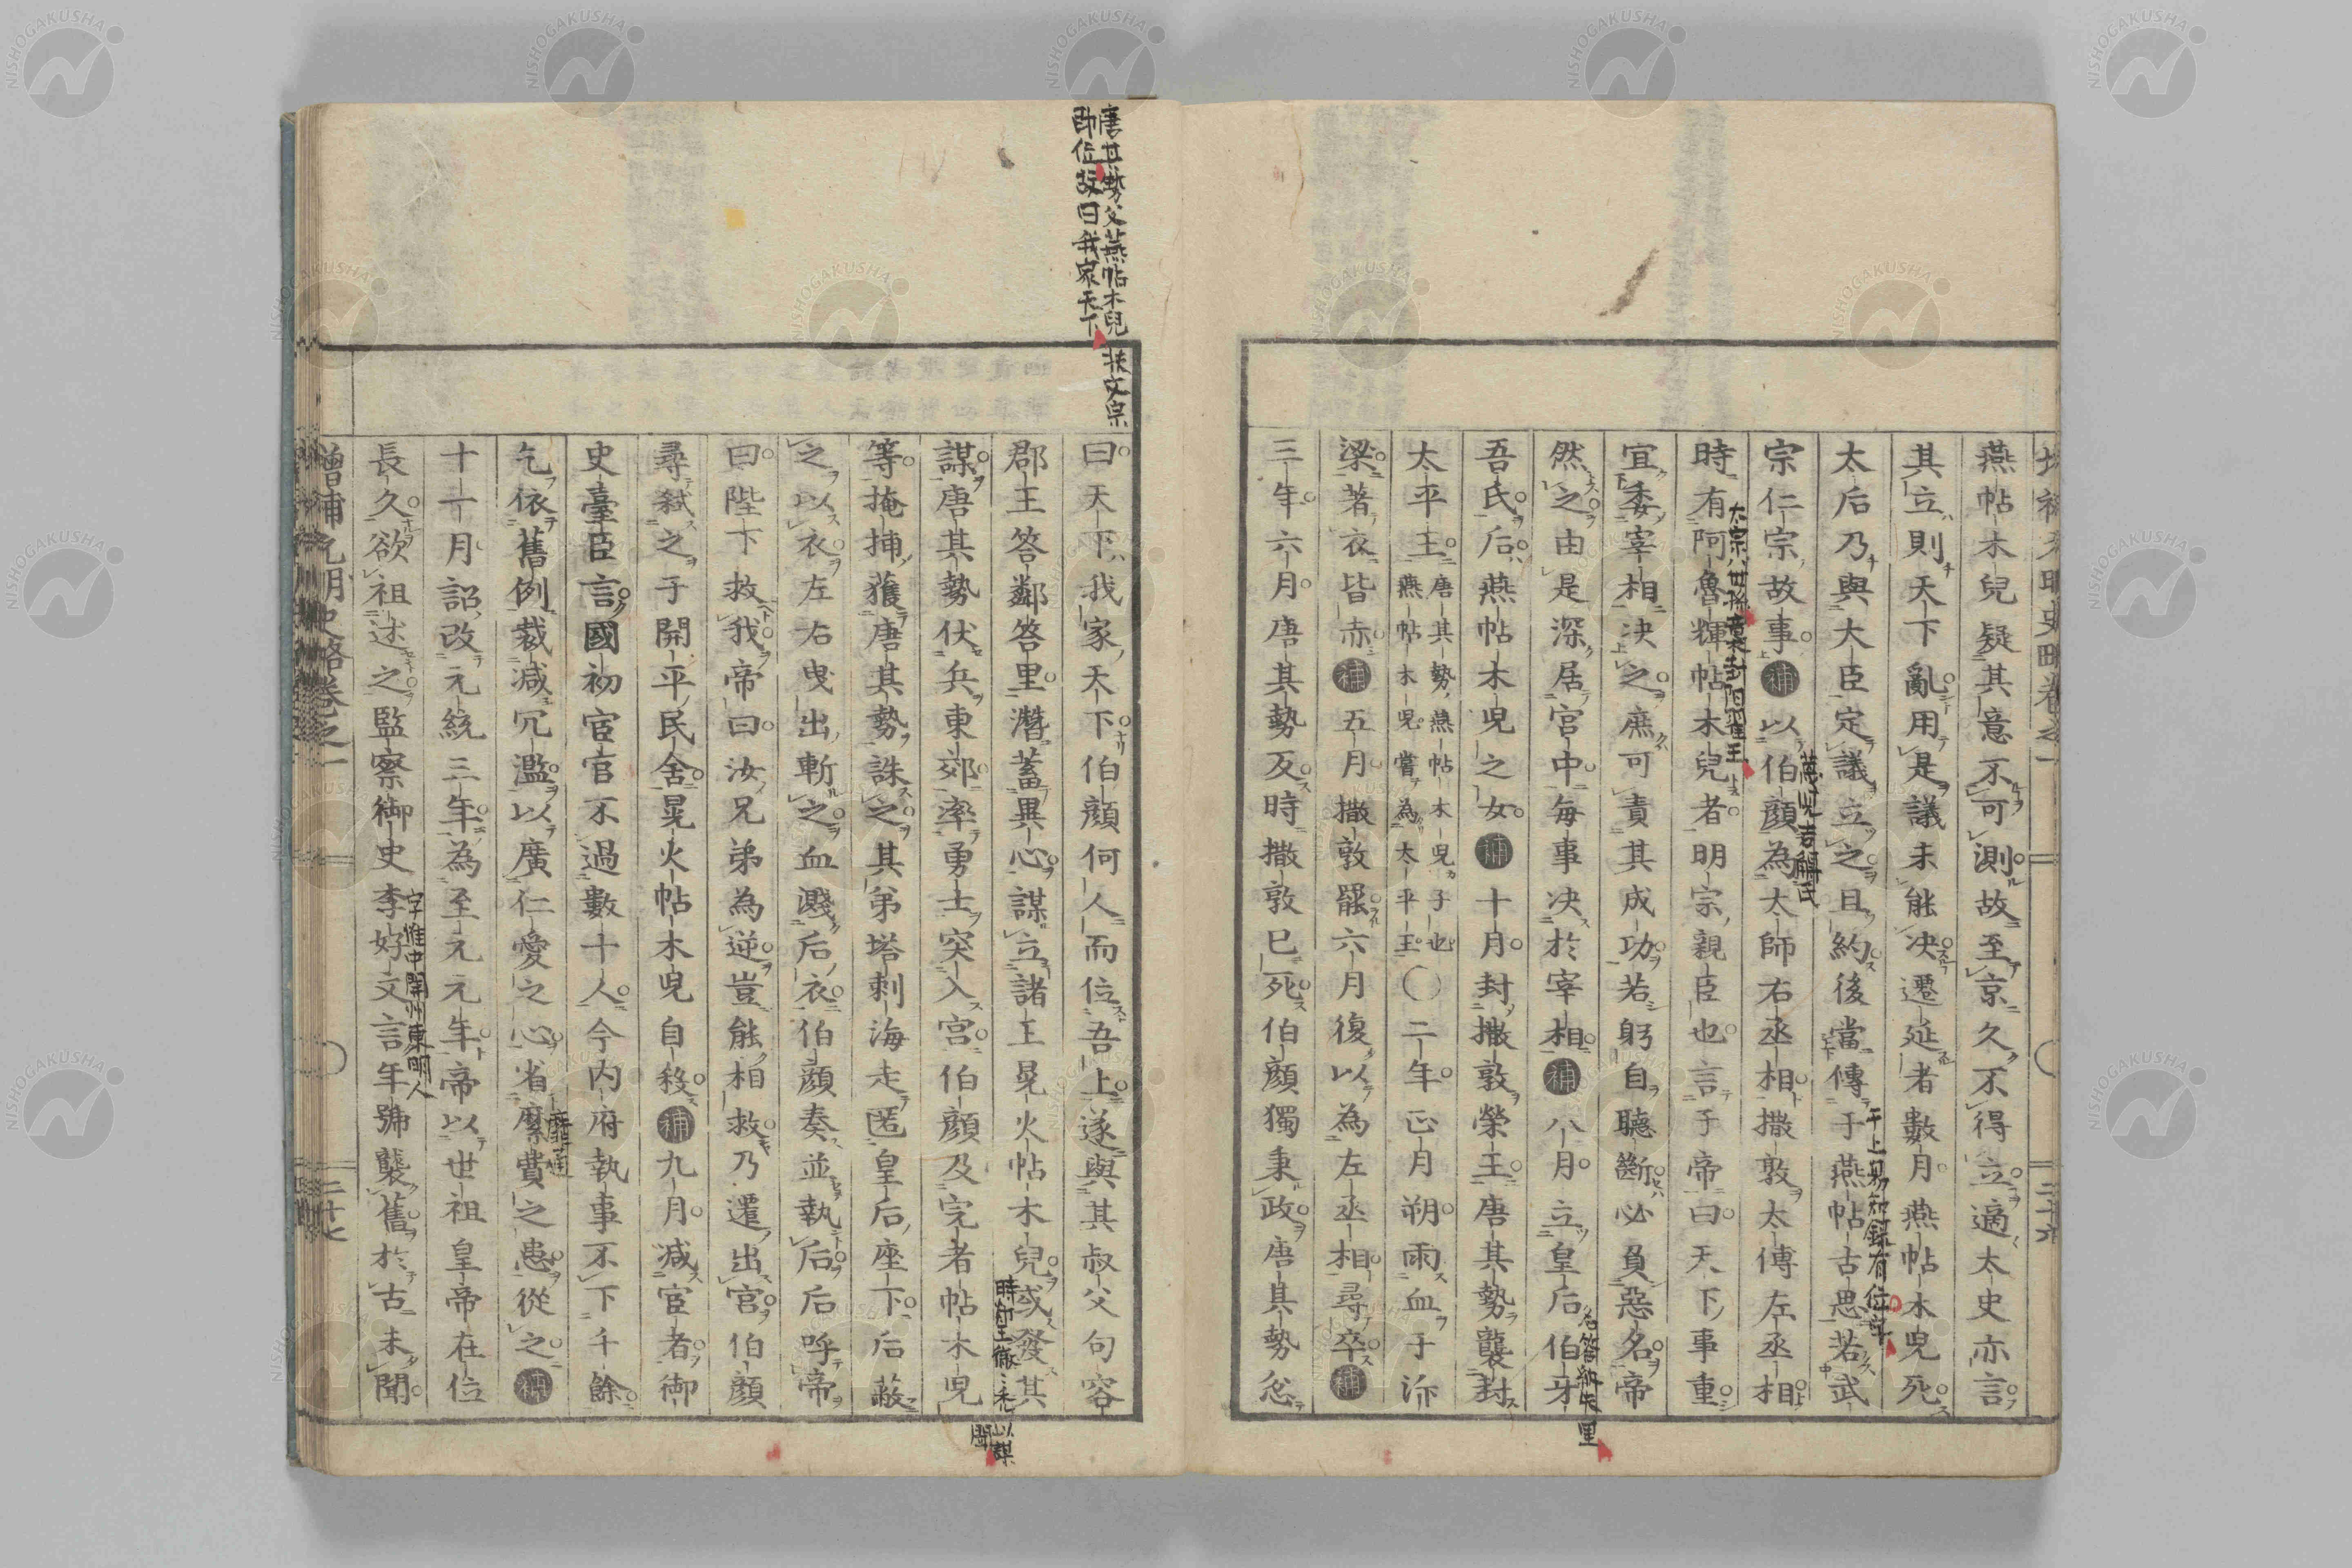 燕帖木兒疑其意不可測故至京久不得立適太史亦言
其立則天下亂用是議未能决遷延者數月燕帖木児死
太后乃與大臣定議立之且約後當傳于燕帖古思若武
宗仁宗故事補以伯顔為太師右丞相撒敦太傅左丞相
時有阿魯輝帖木兒者明宗親臣也言于帝曰天下事重
宜委宰相决之庶可責其成功若躬自聽斷必負惡名帝
然之由是深居宮中每事决於宰相補八月立皇后伯牙
吾氏后燕帖木児之女補十月封撒敦榮王唐其勢襲封
太平王唐其勢燕帖木児子也燕帖木児嘗為太平王〇二年正月朔雨血于汴
梁著衣皆赤補五月撒敦罷六月復以為左丞相尋卒補
三年六月唐其勢反時撒敦已死伯顔獨秉政唐其勢忿
太宗八世孫襲封陽翟王
燕児吉䚟氏
于上易知録有位字
名答納失里
二十六
曰天下我家天下伯顔何人而位吾上遂與其叔父句容
郡王答鄰答里潛蓄異心謀立諸王晃火帖木兒或發其
謀唐其勢伏兵東郊率勇士突入宮伯顔及完者帖木児
等掩捕獲唐其勢誅之其弟塔剌海走匿皇后座下后蔽
之以衣左右曳出斬之血濺后衣伯顔奏並執后后呼帝
曰陛下救我帝曰汝兄弟為逆豈能相救乃遷出宮伯顔
尋弑之于開平民舍晃火帖木児自殺補九月减宦者御
史臺臣言國初宦官不過數十人今内府執事不下千餘
乞依舊例裁减冗濫以廣仁愛之心省縻費之患從之補
十一月詔改元統三年為至元元年帝以世祖皇帝在位
長久欲祖述之監察御史李好文言年號襲舊於古未聞
増補元明史略卷之一
二十七
唐其勢父燕帖木兒扶文宗
即位故曰我家天下
字惟中開州東明人